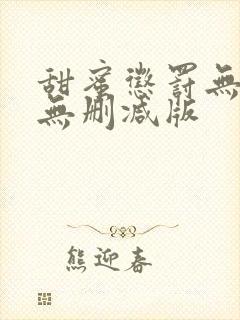 甜蜜懲罰無
無刪減版
熊迎春